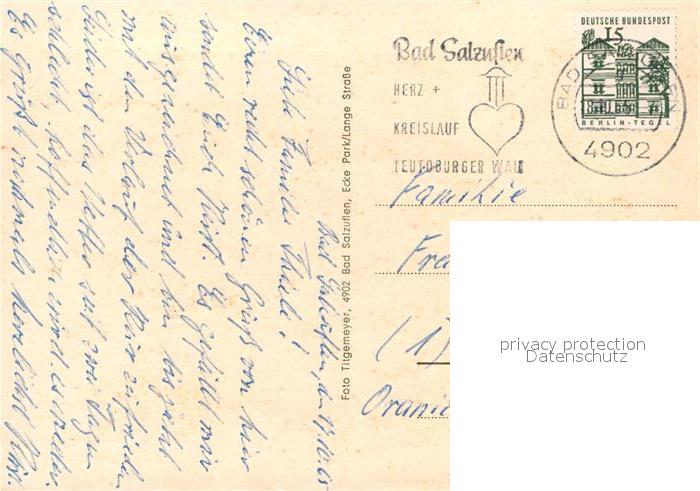 Bad Salzuflen, d. 17.10.65
Liebe Familie Thiele!
Einen recht schönen Gruß von hier
sendet Euch Kurt. Es gefällt mir
ausgezeichnet und bin bis jetzt
mit dem Verlauf der Kur zufrieden
Leider ist das Wetter seit zwei Tagen
schlecht, hoffentlich wird es wieder.
Es grüßt nochmals herzlichst Kurt.
Foto Titgemeyer, 4902 Bad Salzuflen, Ecke Park/Lange Straße
Bad Salzuflen
HERZ +
KREISLAUF
TEUTOBURGER WALD
DEUTSCHE BUNDESPOST
15
BERLIN-TEGEL
BAD SALZUFLEN
4902
Familie
(1)
privacy protection
Datenschutz